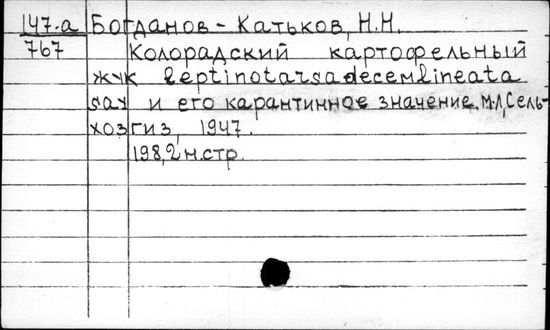 147-а Богданов - Катьков, Н.Н.
767 Колорадский картофельный
жук leptinotarsa decemlineata
say и его карантинное значение. М-Л, Сель-
хозгиз, 1947.
198, 2 н. стр.